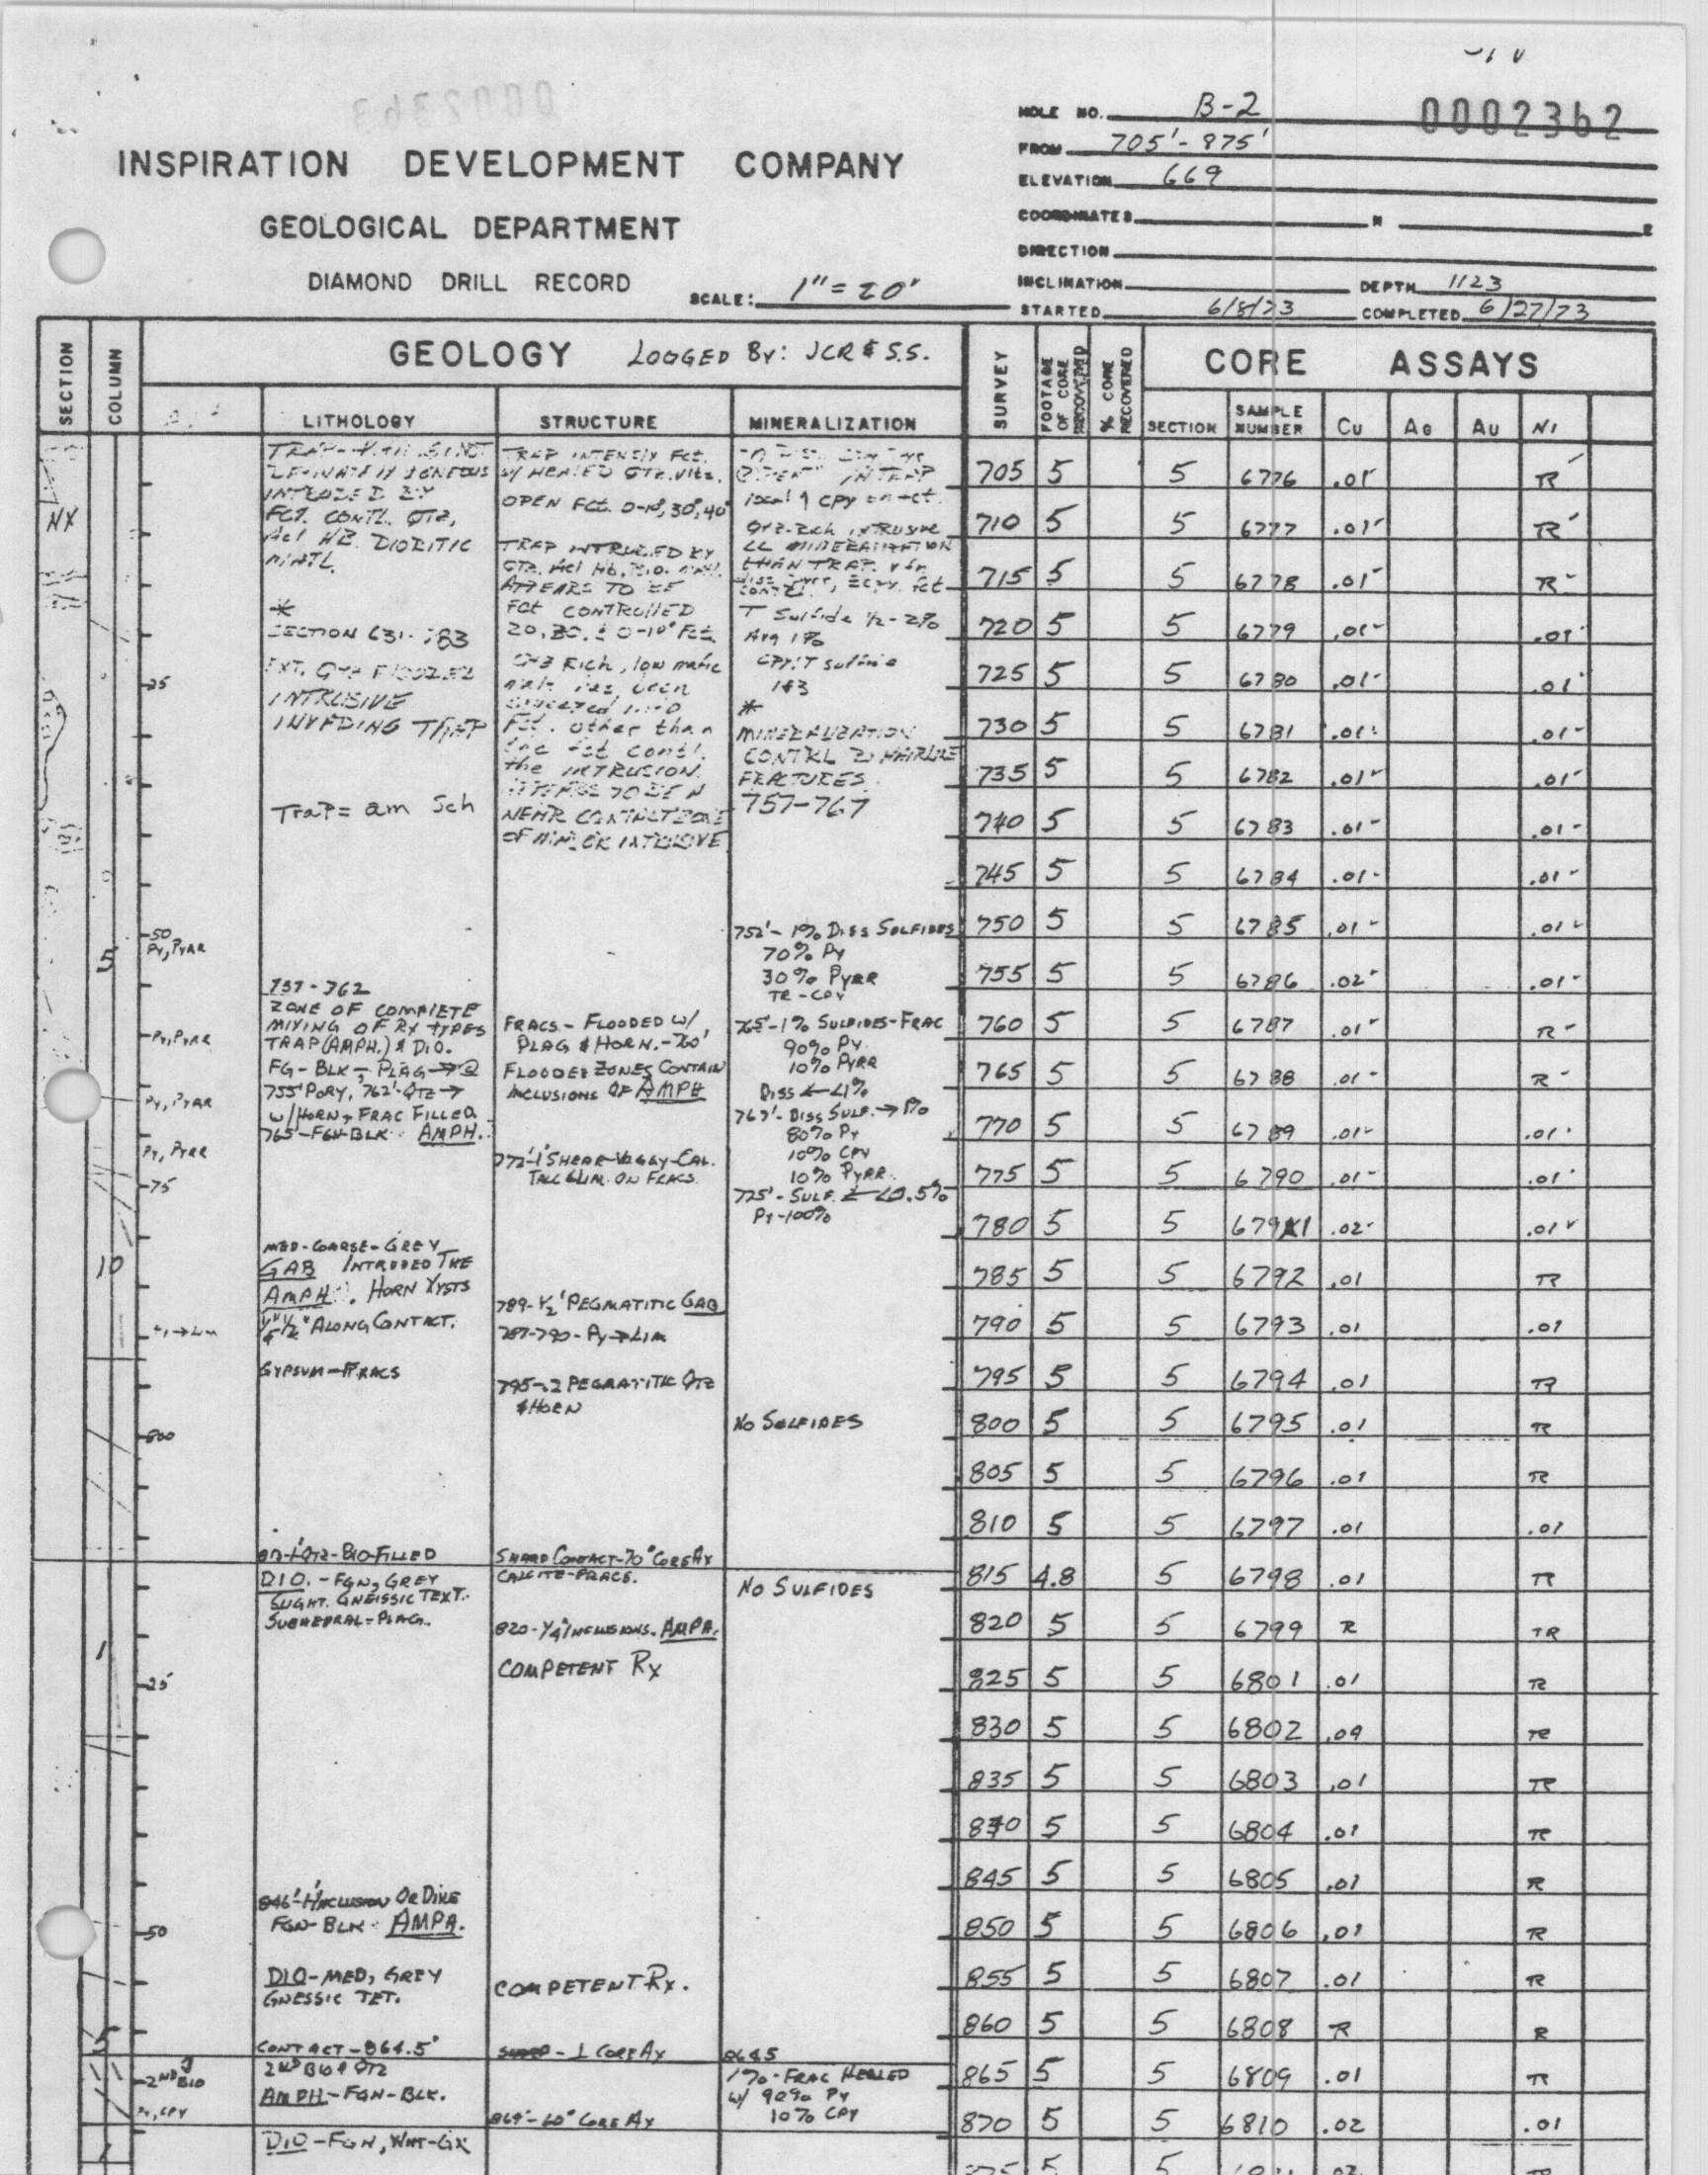 0002362
HOLE NO. B-2
FROM 705'-875'
INSPIRATION DEVELOPMENT COMPANY
ELEVATION 669
COORDINATES N E
GEOLOGICAL DEPARTMENT
DIRECTION
DIAMOND DRILL RECORD
SCALE: 1"=20'
INCLINATION DEPTH 1123
STARTED 6/8/73 COMPLETED 6/27/73
SECTION
COLUMN
GEOLOGY LOGGED BY: JCR & S.S.
SURVEY
FOOTAGE OF CORE RECOVERED
% CORE RECOVERED
CORE ASSAYS
LITHOLOGY STRUCTURE MINERALIZATION
SECTION SAMPLE NUMBER Cu AG AU Ni
NX
INTRUDED BY
FCT. CONTL. QTZ,
DIORITIC
MATL.
*
SECTION
INTRUSIVE
INVADING TRAP
TRAP = am Sch
TRAP INTENSLY FCT.
W/ HEALED QTZ. Vlts.
OPEN FCT. 0-10°, 30°, 40°
TRAP INTRUDED BY
APPEARS TO BE
FCt CONTROLLED
QTZ Rich, low mafic
Fct. other than
the INTRUSION.
NEAR CONTACT ZONE
IN TRAP
THAN TRAP.
T Sulfide 1/2-2%
Avg 1%
CPY:T Sulfide
1&3
*
MINERALIZATION
CONTRL HAIRLINE
FRACTURES.
757-767
25
50
PY, PYRR
5
757-762
ZONE OF COMPLETE
MIXING OF RX TYPES
TRAP(AMPH.) & DIO.
FG-BLK-, PLAG→@
755' PORY, 762'-QTZ→
W/HORN, FRAC FILLED
765'-FGN-BLK AMPH.
PY, PYRR
PY, PYRR
PY, PYRR
75
FRACS-FLOODED W/
PLAG & HORN.-760'
FLOODED ZONES CONTAIN
INCLUSIONS OF AMPH
772'-1' SHEAR-VUGGY-CAL.
TALC & LIM. ON FRACS.
752'-1% DISS SULFIDES
70% PY
30% PYRR
TR-CPY
765'-1% SULFIDES-FRAC
90% PY
10% PYRR
DISS ← <1%
767'-DISS SULF.→1%
80% PY
10% CPY
10% PYRR
725'-SULF. <0.5%
PY-100%
10
MED-COARSE-GREY
GAB INTRUDED THE
AMPH. HORN XYSTS
ALONG CONTACT.
GYPSUM-FRACS
789-1/2' PEGMATITIC GAB
787-790-PY→LIM
795-.2 PEGMATITIC QTZ
& HORN
NO SULFIDES
800
-QTZ-BIO-FILLED
DIO.-FGN, GREY
SLIGHT. GNEISSIC TEXT.
SUBHEDRAL-PLAG.
SHARP CONTACT-70° CORE AX
CALCITE-FRACS.
820-1/4' INCLUSIONS. AMPH.
COMPETENT RX
NO SULFIDES
1
25
846'-1' INCLUSION OR DIKE
FGN-BLK AMPH.
50
DIO-MED, GREY
GNESSIC TET.
COMPETENT RX.
5
CONTACT-864.5'
2ND BIO & QTZ
AMPH-FGN-BLK.
2ND BIO
PY, CPY
SHARP-⊥ CORE AX
869'-60° CORE AX
864.5
1%-FRAC HEALED
W/ 90% PY
10% CPY
1
DIO-FGN, WHT-
705 5 5 6776 .01 TR
710 5 5 6777 .01 TR
715 5 5 6778 .01 TR
720 5 5 6779 .01 .01
725 5 5 6780 .01 .01
730 5 5 6781 .01 .01
735 5 5 6782 .01 .01
740 5 5 6783 .01 .01
745 5 5 6784 .01 .01
750 5 5 6785 .01 .01
755 5 5 6786 .02 .01
760 5 5 6787 .01 TR
765 5 5 6788 .01 TR
770 5 5 6789 .01 .01
775 5 5 6790 .01 .01
780 5 5 6791 .02 .01
785 5 5 6792 .01 TR
790 5 5 6793 .01 .01
795 5 5 6794 .01 TR
800 5 5 6795 .01 TR
805 5 5 6796 .01 TR
810 5 5 6797 .01 .01
815 4.8 5 6798 .01 TR
820 5 5 6799 TR TR
825 5 5 6801 .01 TR
830 5 5 6802 .09 TR
835 5 5 6803 .01 TR
840 5 5 6804 .01 TR
845 5 5 6805 .01 TR
850 5 5 6806 .01 TR
855 5 5 6807 .01 TR
860 5 5 6808 TR TR
865 5 5 6809 .01 TR
870 5 5 6810 .02 .01